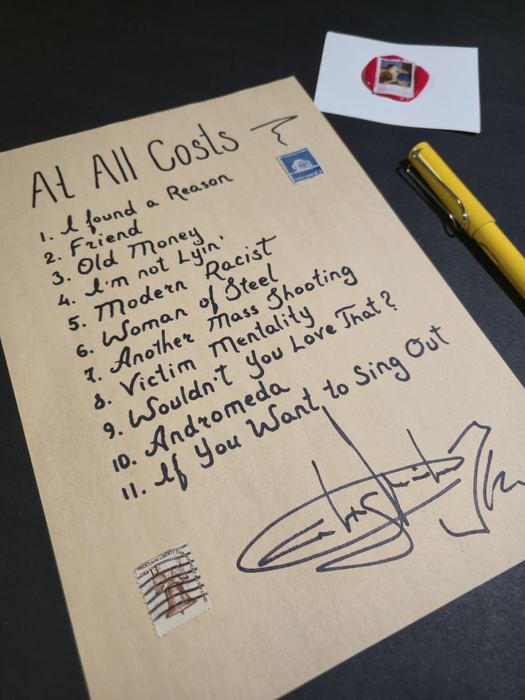 At All Costs
1. I found a Reason
2. Friend
3. Old Money
4. I'm not Lyin'
5. Modern Racist
6. Woman of Steel
7. Another Mass Shooting
8. Victim Mentality
9. Wouldn't You Love That?
10. Andromeda
11. If You Want to Sing Out
PROCLAIM LIBERTY THR